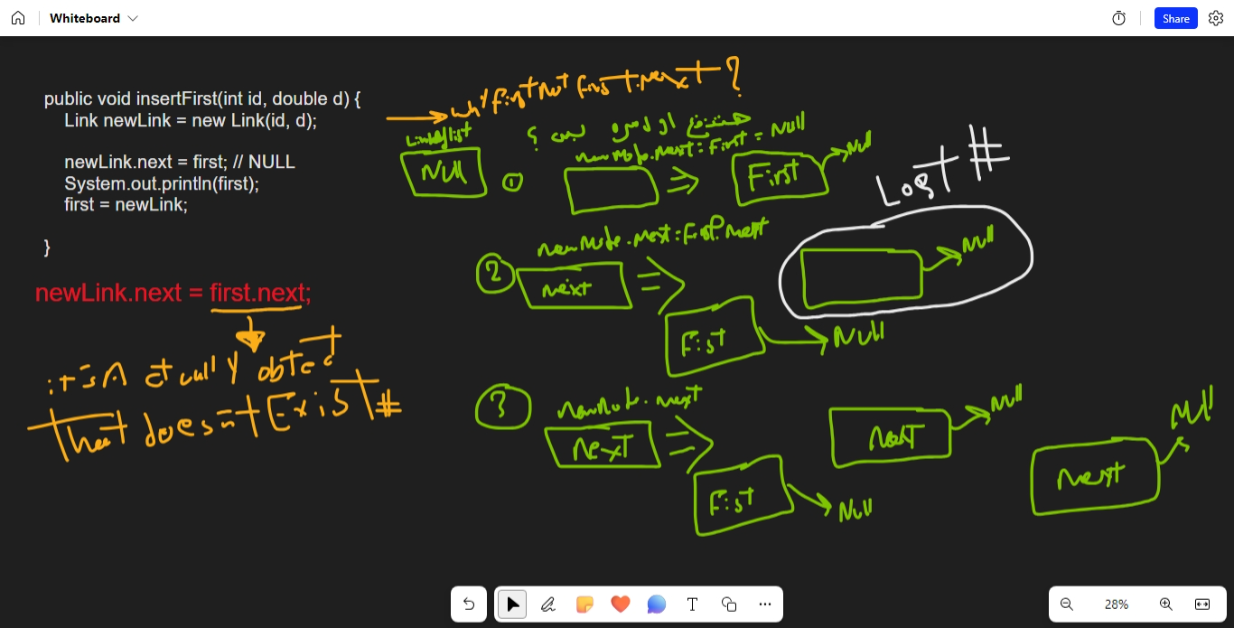 Whiteboard
Share
public void insertFirst(int id, double d) {
Link newLink = new Link(id, d);
newLink.next = first; // NULL
System.out.println(first);
first = newLink;
}
newLink.next = first.next;
it's Actually
that doesn't Exist #
why first not first.next ?
Linkedlist
Null
①
newNode.next = First = Null
First
Null
Lost #
②
newNode.next = First.next
next
First
Null
Null
③
newNode.next
next
First
Null
next
Null
next
Null
28%